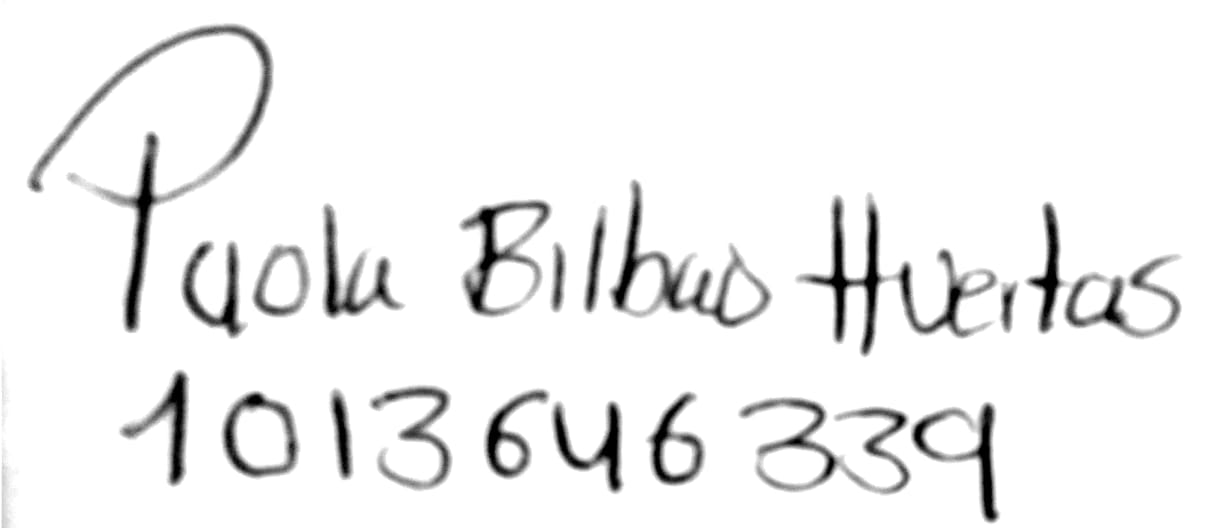 Paola Bilbao Huertas
1013646339